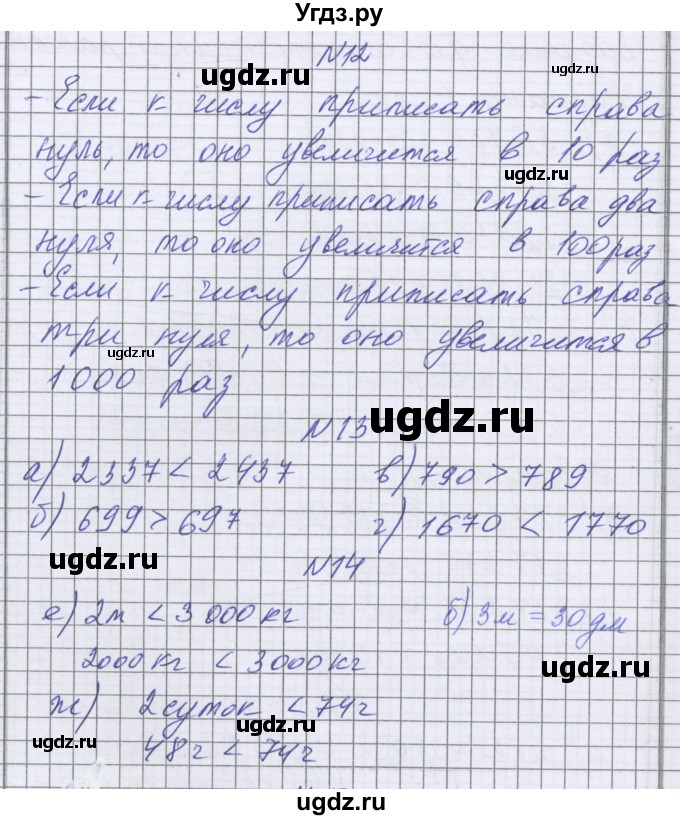 Угдз.ру
N12
ugdz.ru
ugdz.ru
- Если к числу приписать справа
нуль, то оно увеличится в 10 раз
ugdz.ru
- Если к числу приписать справа два
нуля, то оно увеличится в 100 раз
- Если к числу приписать справа
три нуля, то оно увеличится в
ugdz.ru
1000 раз
N13
ugdz.ru
а) 2337 < 2437 в) 790 > 789
б) 699 > 697 г) 1670 < 1770
ugdz.ru
N14
е) 2т < 3 000 кг б) 3м = 30 дм
2000 кг < 3000 кг
ugdz.ru
ж) 2 суток < 74 ч
ugdz.ru
ugdz.ru
48 ч < 74 ч
ugdz.ru
ugdz.ru